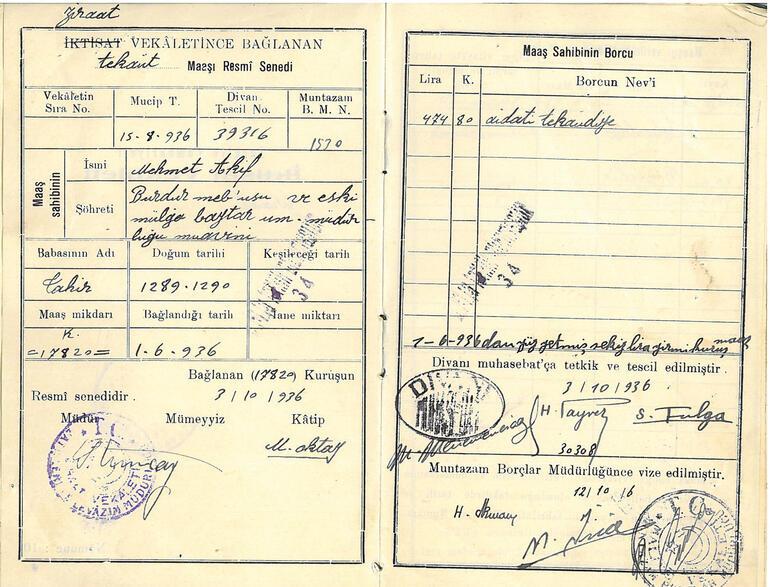 Ziraat
İKTİSAT VEKÂLETİNCE BAĞLANAN
tekaüt Maaşı Resmî Senedi
Vekâletin Sıra No.
Mucip T.
Divan Tescil No.
Muntazam B. M. N.
15-8-936
39316
1530
Maaş sahibinin
İsmi
Mehmet Akif
Şöhreti
Burdur meb'usu ve eski
mülga baytar um. müdür
lüğü muavini
Babasının Adı
Doğum tarihi
Kesileceği tarih
Tahir
1289-1290
34
Maaş mikdarı
Bağlandığı tarih
Hane miktarı
K.
=17820=
1-6-936
Bağlanan (17820) Kuruşun
Resmî senedidir.
3/10/1936
Müdür
Mümeyyiz
Kâtip
M. oktay
T C
Maaş Sahibinin Borcu
Lira
K.
Borcun Nev'i
474
80
aidatı tekaüdiye
34
1-6-936 dan yüz yetmiş sekiz lira yirmi kuruş maaş
Divanı muhasebat'ça tetkik ve tescil edilmiştir.
3/10/1936
DİVANI
H. Tayrez
S. Tulga
30308
Muntazam Borçlar Müdürlüğünce vize edilmiştir.
12/10/16
H. Akman
T C
Nümune :